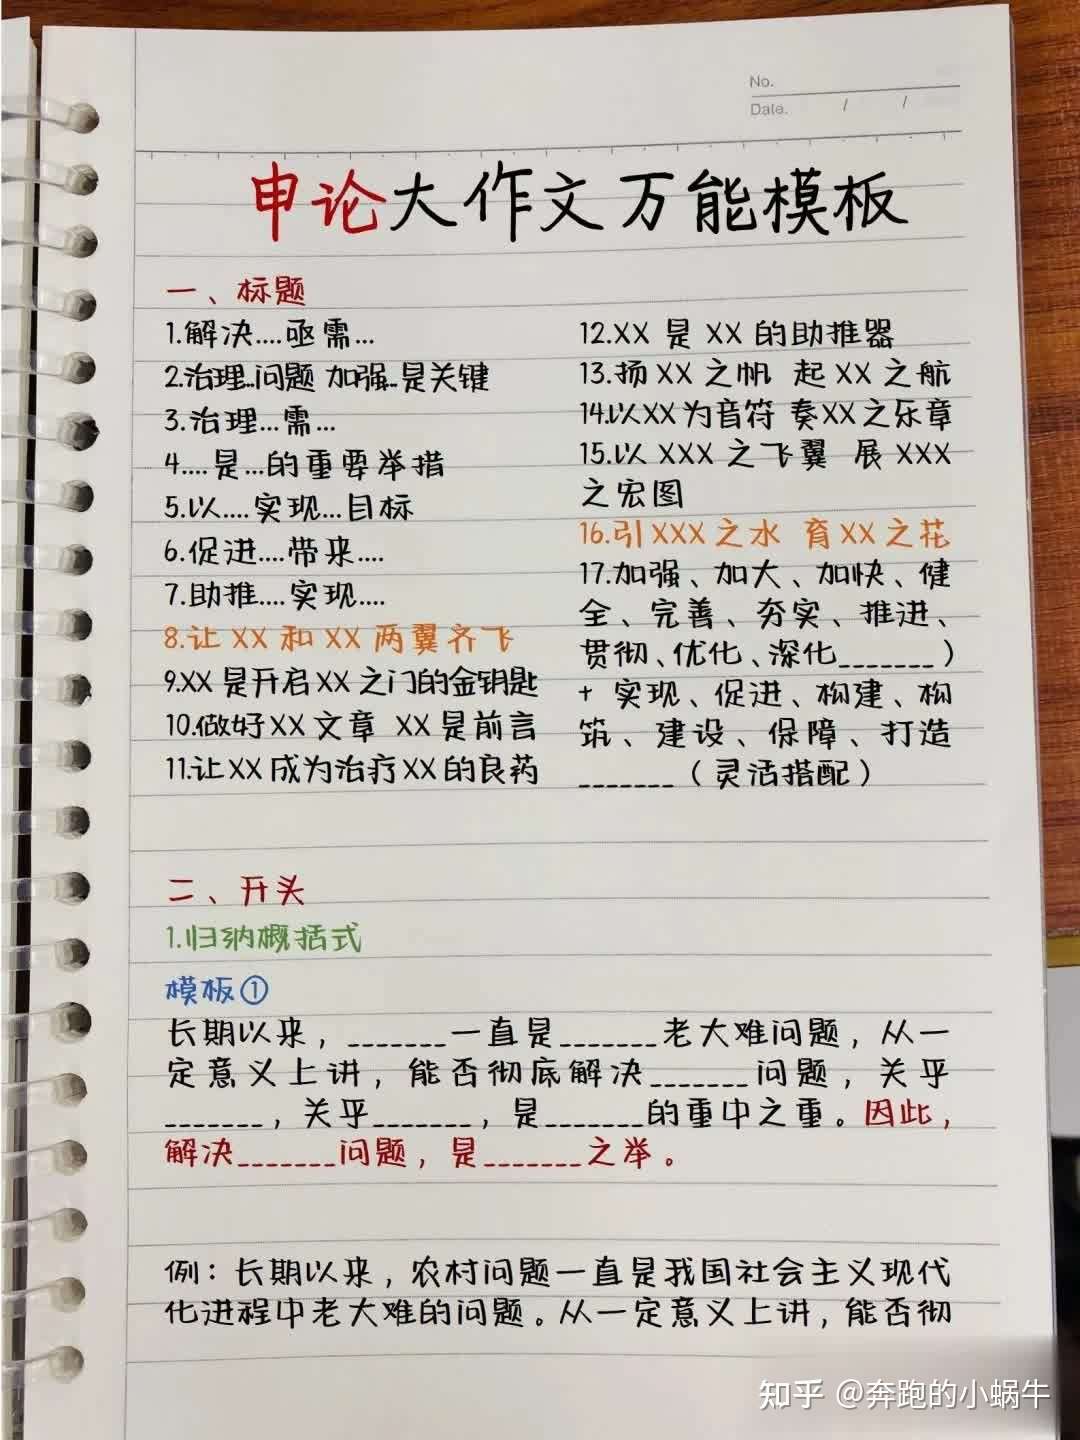 No.
Date. / /
申论大作文万能模板
一、标题
1.解决....亟需...
2.治理...问题 加强...是关键
3.治理...需...
4....是...的重要举措
5.以....实现...目标
6.促进....带来....
7.助推....实现....
8.让XX和XX两翼齐飞
9.XX是开启XX之门的金钥匙
10.做好XX文章 XX是前言
11.让XX成为治疗XX的良药
12.XX 是 XX 的助推器
13.扬XX之帆 起XX之航
14.以XX为音符 奏XX之乐章
15.以 XXX 之飞翼 展 XXX
之宏图
16.引XXX之水 育XX之花
17.加强、加大、加快、健
全、完善、夯实、推进、
贯彻、优化、深化_______)
+ 实现、促进、构建、构
筑、建设、保障、打造
_______(灵活搭配)
二、开头
1.归纳概括式
模板①
长期以来，_______一直是_______老大难问题，从一
定意义上讲，能否彻底解决_______问题，关乎
_______，关乎_______，是_______的重中之重。因此，
解决_______问题，是_______之举。
例：长期以来，农村问题一直是我国社会主义现代
化进程中老大难的问题。从一定意义上讲，能否彻
知乎 @奔跑的小蜗牛